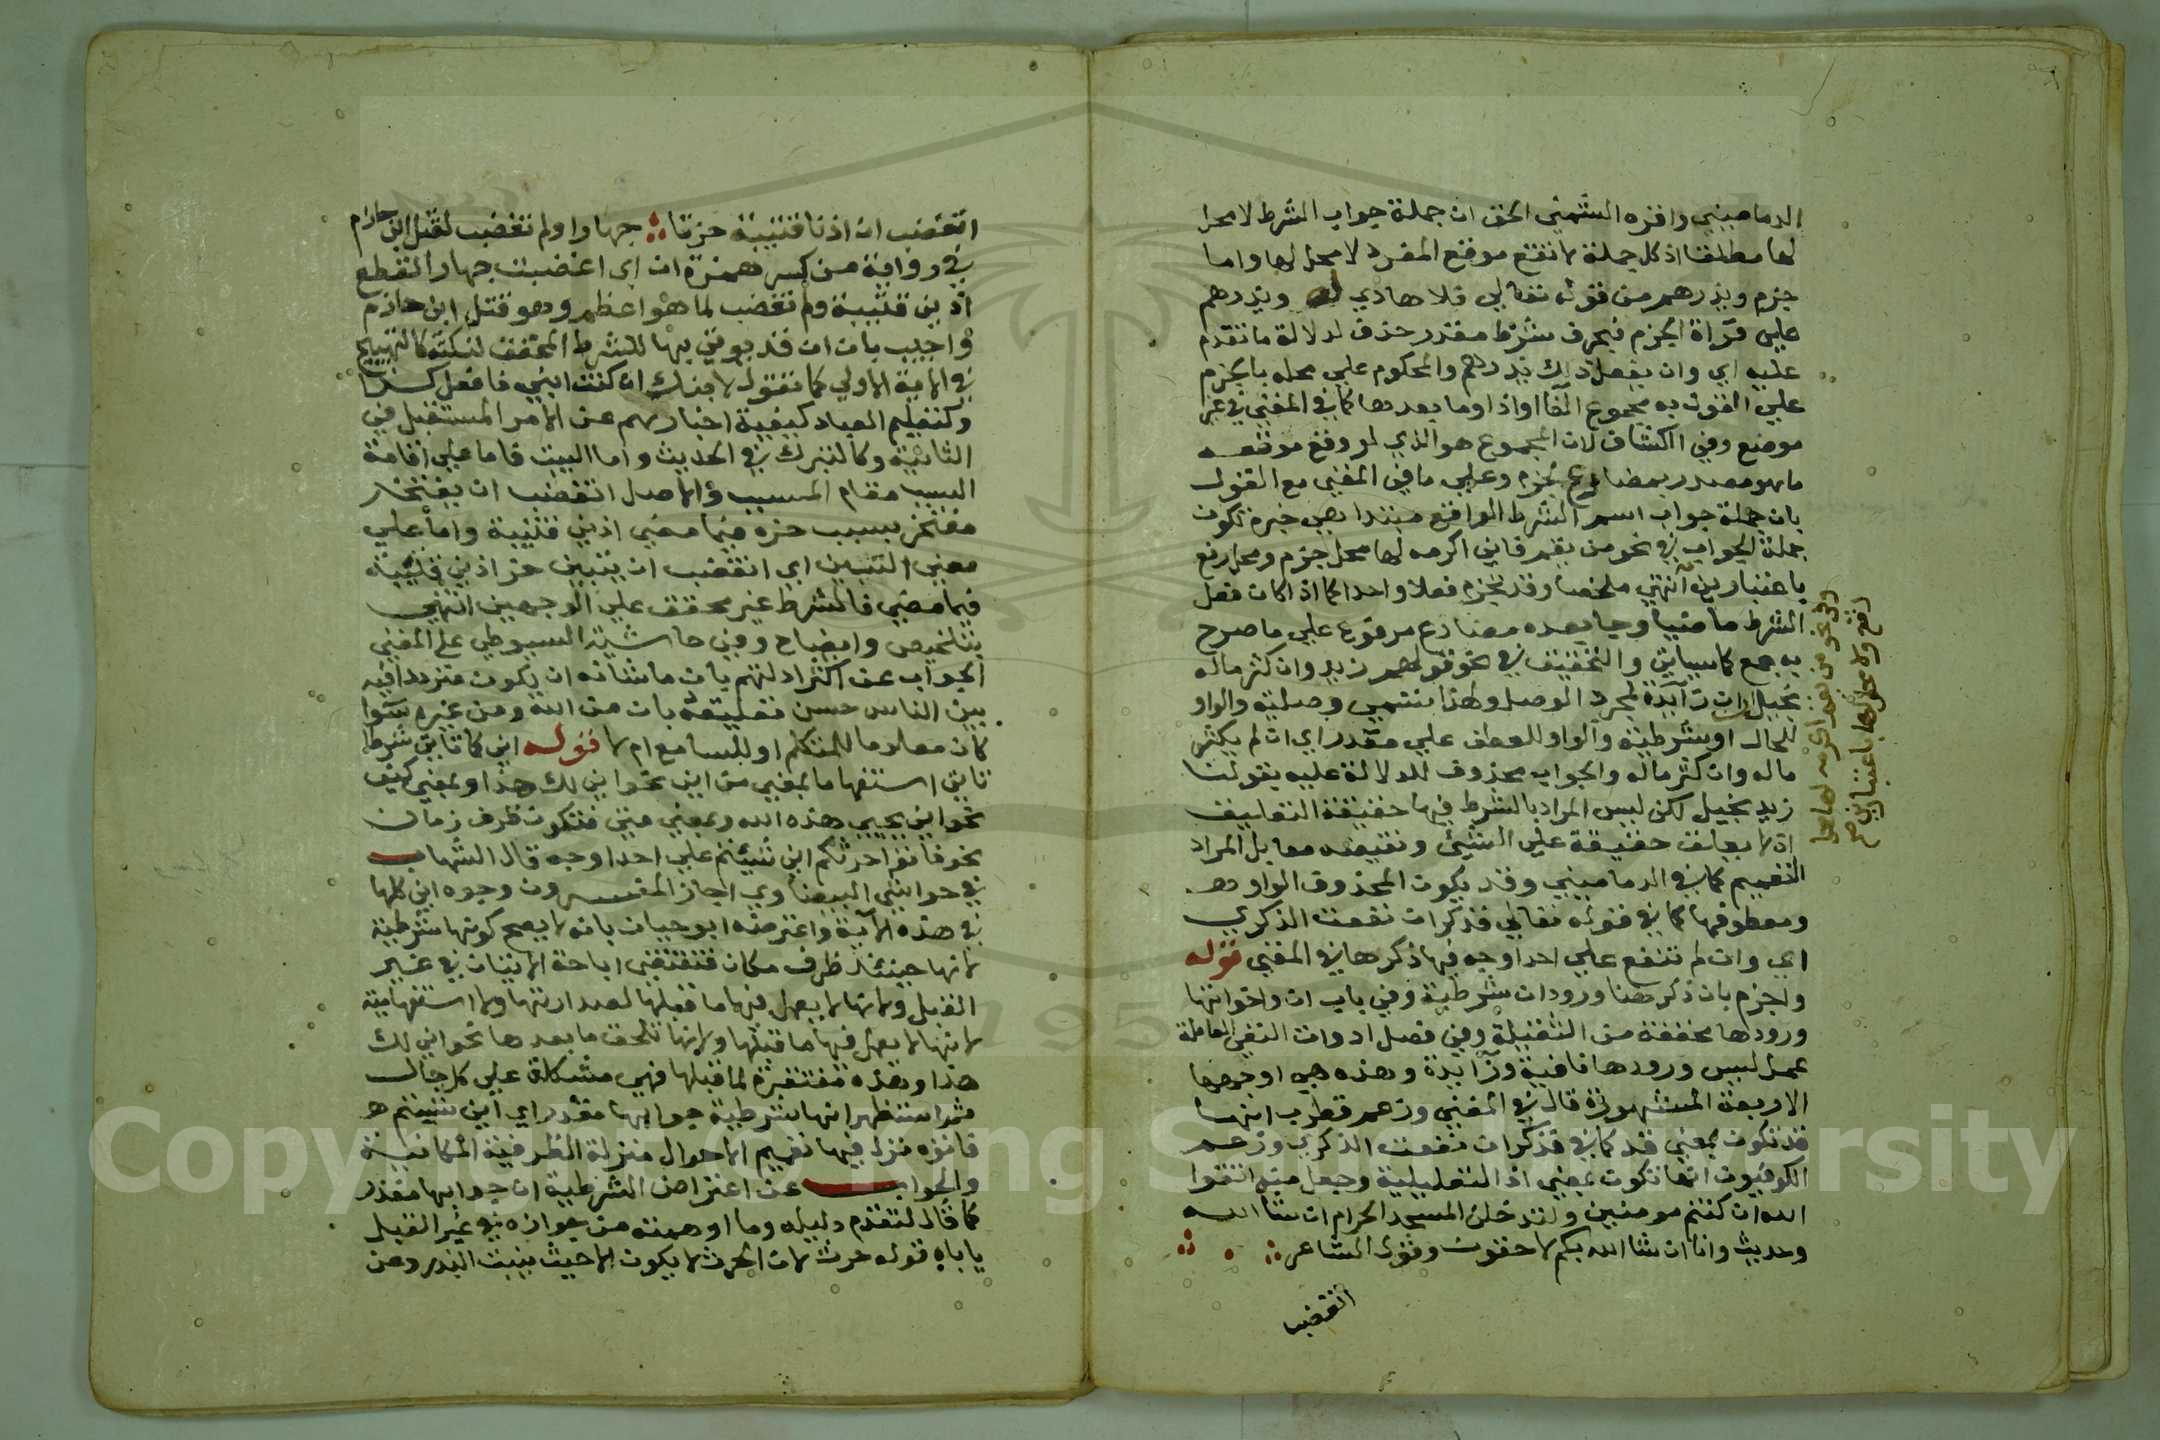 الدماميني واقره الشمني الحق ان جملة جواب الشرط لا محل
لها مطلقا اذ كل جملة لا تقع موقع المفرد لا محل لها واما
جزم ويذرهم من قوله تعالى فلا هادي له ويذرهم
على قراة الجزم فبحرف شرط مقدر حذف لدلالة ما تقدم
عليه اي وان يفعل ذلك يذرهم والمحكوم على محله بالجزم
على القول به مجموع الفا او اذا وما بعدها كما في المغني في غير
موضع وفي الكشاف لان المجموع هو الذي لو وقع موقعه
ما هو مصدر بمضارع لجزم وعلى ما في المغني مع القول
بان جملة جواب اسم الشرط الواقع مبتدا هي خبره تكون
جملة الجواب في نحو من يقم فاني اكرمه لها محل جزم ومحل رفع
باعتبارين انتهى ملخصا وقد تجزم فعلا واحدا كما اذا كان فعل
الشرط ماضيا وجا بعده مضارع مرفوع على ما صرح
به جمع كما سياتي والتحقيق في نحو قولهم زيد وان كثر ماله
بخيل ان زائدة لمجرد الوصل ولهذا تسمى وصلية والواو
للحال او شرطية والواو للعطف على مقدر اي ان لم يكثر
ماله وان كثر ماله والجواب محذوف للدلالة عليه بقولنا
زيد بخيل لكن ليس المراد بالشرط فيها حقيقة التعليق
اذ لا يعلق حقيقة على الشيء ونقيضه معا بل المراد
التعميم كما في الدماميني وقد يكون المحذوف الواو
ومعطوفها كما في قوله تعالى فذكر ان نفعت الذكرى
اي وان لم تنفع على احد اوجه فيها ذكرها في المغني قوله
واجزم بان ذكر هنا ورود ان شرطية وفي باب ان واخواتها
ورودها مخففة من الثقيلة وفي فصل ادوات النفي العاملة
عمل ليس ورودها نافية وزائدة وهذه هي اوجهها
الاربعة المشهورة قال في المغني وزعم قطرب انها
قد تكون بمعنى قد كما في فذكر ان نفعت الذكرى وزعم
الكوفيون انها تكون بمعنى اذ التعليلية وجعل منه اتقوا
الله ان كنتم مومنين ولتدخلن المسجد الحرام ان شا الله
وحديث وانا ان شا الله بكم لاحقون وقول الشاعر
اتغضب
وفي نحو من يقم اكرمه لها محل
رفع ولا محل لها باعتبارين صح
اتغضب ان اذنا قتيبة حزتا جهارا ولم تغضب لقتل ابن حازم
في رواية من كسر همزة ان اي اغضبت جهارا لقطع
اذني قتيبة ولم تغضب لما هو اعظم وهو قتل ابن حازم
واجيب بان ان قد يوتى بها للشرط المحقق لنكتة كالتهييج
في الاية الاولى كما تقول لابنك ان كنت ابني فافعل كذا
وكتعليم العباد كيفية اخبارهم عن الامر المستقبل في
الثانية وكالتبرك في الحديث واما البيت فاما على اقامة
السبب مقام المسبب والاصل اتغضب ان يفتخر
مفتخر بسبب حزه فيما مضى اذني قتيبة واما على
معنى التبين اي اتغضب ان يتبين حز اذني قتيبة
فيما مضى فالشرط غير محقق على الوجهين انتهى
بتلخيص وايضاح وفي حاشية السيوطي على المغني
الجواب عن اكثر ادلتهم بان ما شانه ان يكون مترددا فيه
بين الناس حسن تعليقه بان من الله ومن غيره سوا
كان معلوما للمتكلم او للسامع ام لا قوله انى كما تاتي شرطا
تاتي استفهاما بمعنى من اين نحو انى لك هذا وبمعنى كيف
نحو انى يحيي هذه الله وبمعنى متى فتكون ظرف زمان
نحو فاتوا حرثكم انى شئتم على احد اوجه قال الشهاب
في حواشي البيضاوي اجاز المفسرون وجوه انى كلها
في هذه الاية واعترضه ابو حيان بانه لا يصح كونها شرطية
لانها حينئذ ظرف مكان فتقتضي اباحة الاتيان في غير
القبل ولانها لا يعمل فيها ما قبلها لصدارتها ولا استفهامية
لانها لا يعمل فيها ما قبلها ولانها تلحق ما بعدها نحو انى لك
هذا وهذه مفتقرة لما قبلها فهي مشكلة على كل حال
ثم استظهر انها شرطية جوابها مقدر اي انى شئتم
فاتوه نزل فيها تعميم الاحوال منزلة الظرفية المكانية
والجواب عن اعتراض الشرطية ان جوابها مقدر
كما قال لتقدم دليله وما اوهمته من جوازه في غير القبل
ياباه قوله حرث لان الحرث لا يكون الا حيث ينبت البذر وعن
Copyright © King Saud University